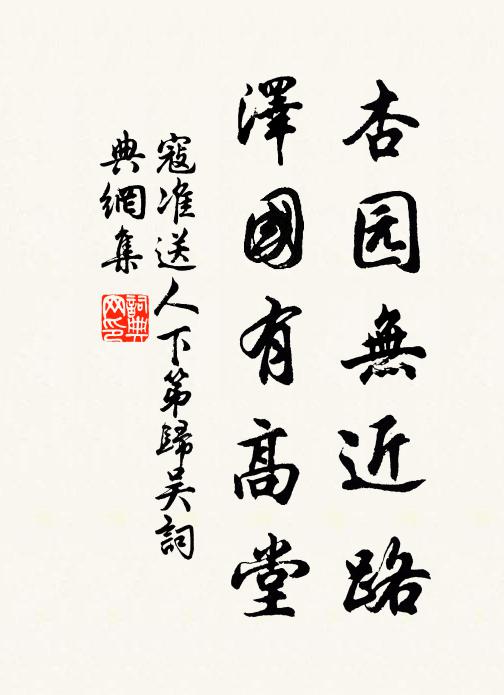 杏园無近路
澤國有高堂
寇准送人下第歸吴詞
典網集
詞典网印